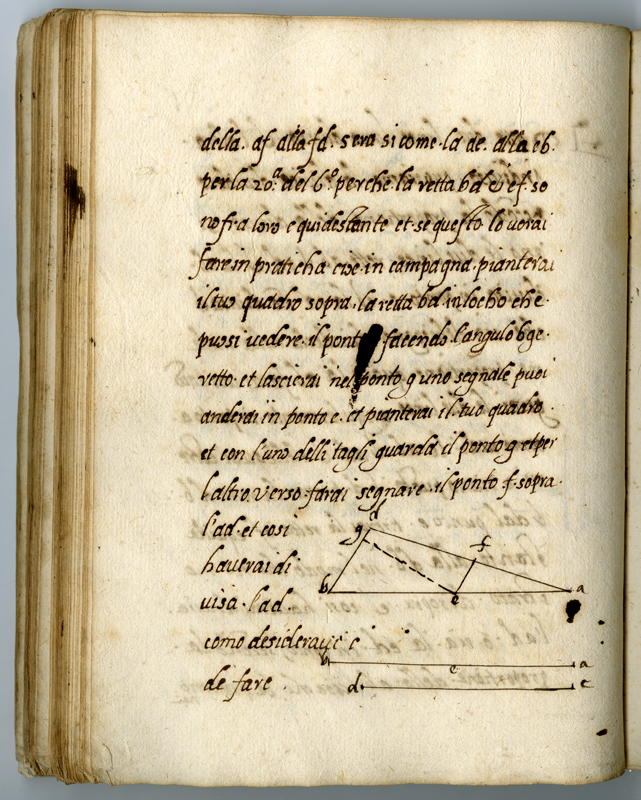 della. af alla fd. sera si come. la ae. alla eb.
per la 20.ª del 6.º perche. la retta bd et ef. so
no fra loro equidestante et se questo lo vorai
fare in praticha cioe. in campagna. pianterai
il tuo quadro sopra. la retta bd. in locho che.
puosi vedere. il pont facendo. l'angulo bge.
retto. et lascierai nel ponto g uno segnale puoi
anderai in ponto e. et pianterai il. tuo quadro.
et con l'uno delli tagli guarda il ponto g et per
l altro. verso farai segnare. il ponto f. sopra.
l'ad. et cosi
haverai di
visa. l ad.
como desideravi
de fare.
d
g
f
b
e
a
b
e
a
d
c